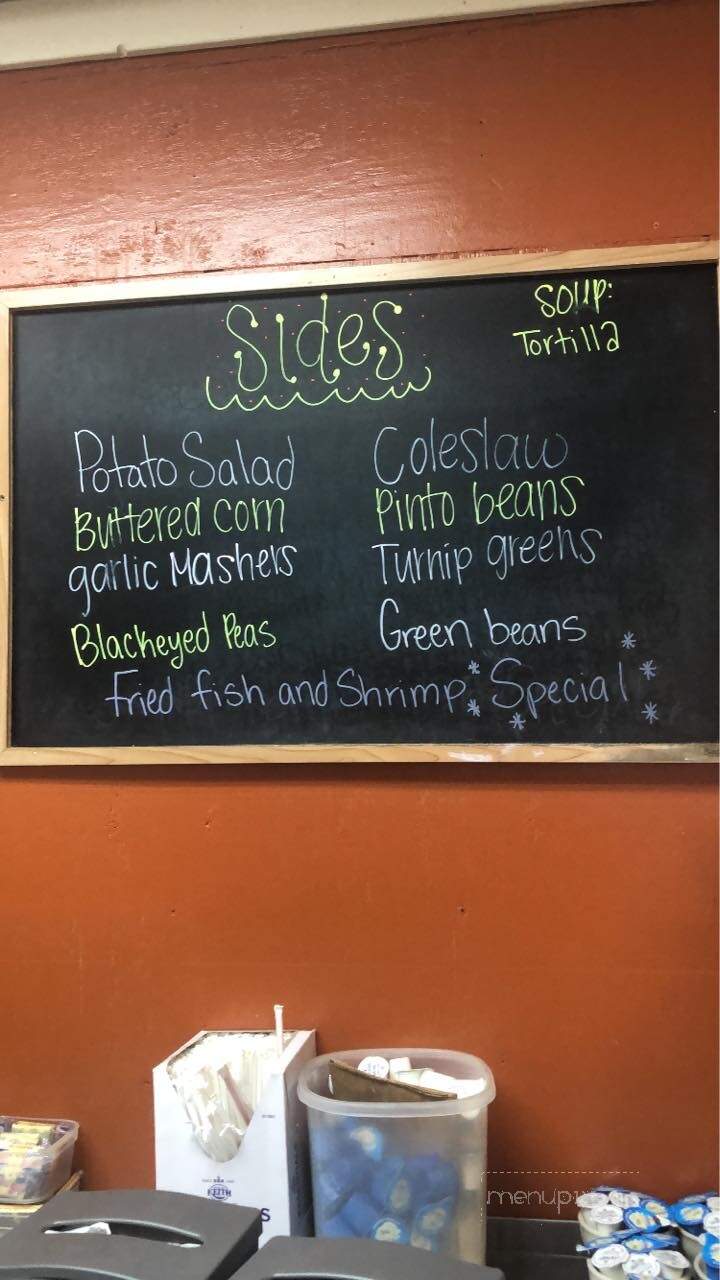 Sides
Soup:
Tortilla
Potato Salad
Coleslaw
Buttered corn
Pinto beans
garlic Mashers
Turnip greens
Blackeyed Peas
Green beans
Fried fish and Shrimp * Special *
menupix